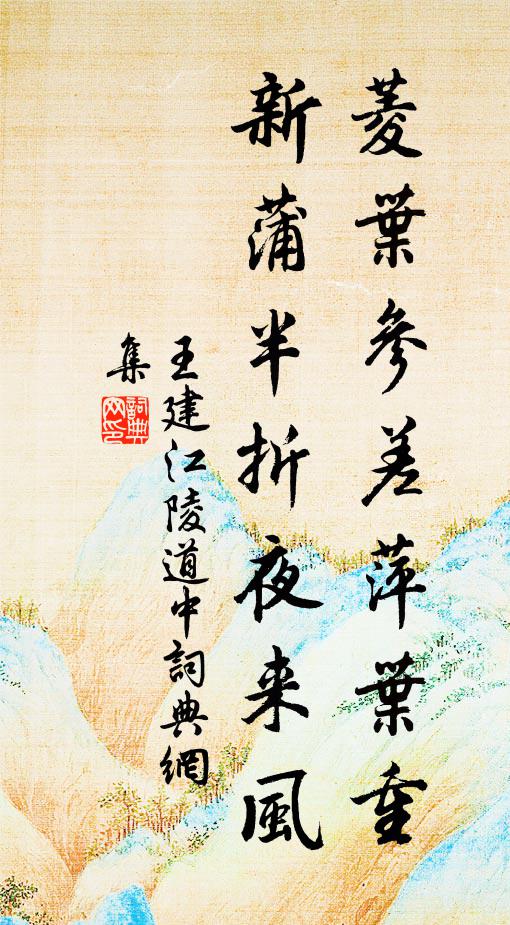 菱葉參差萍葉重
新蒲半折夜来風
王建江陵道中詞典網
集
詞典網印